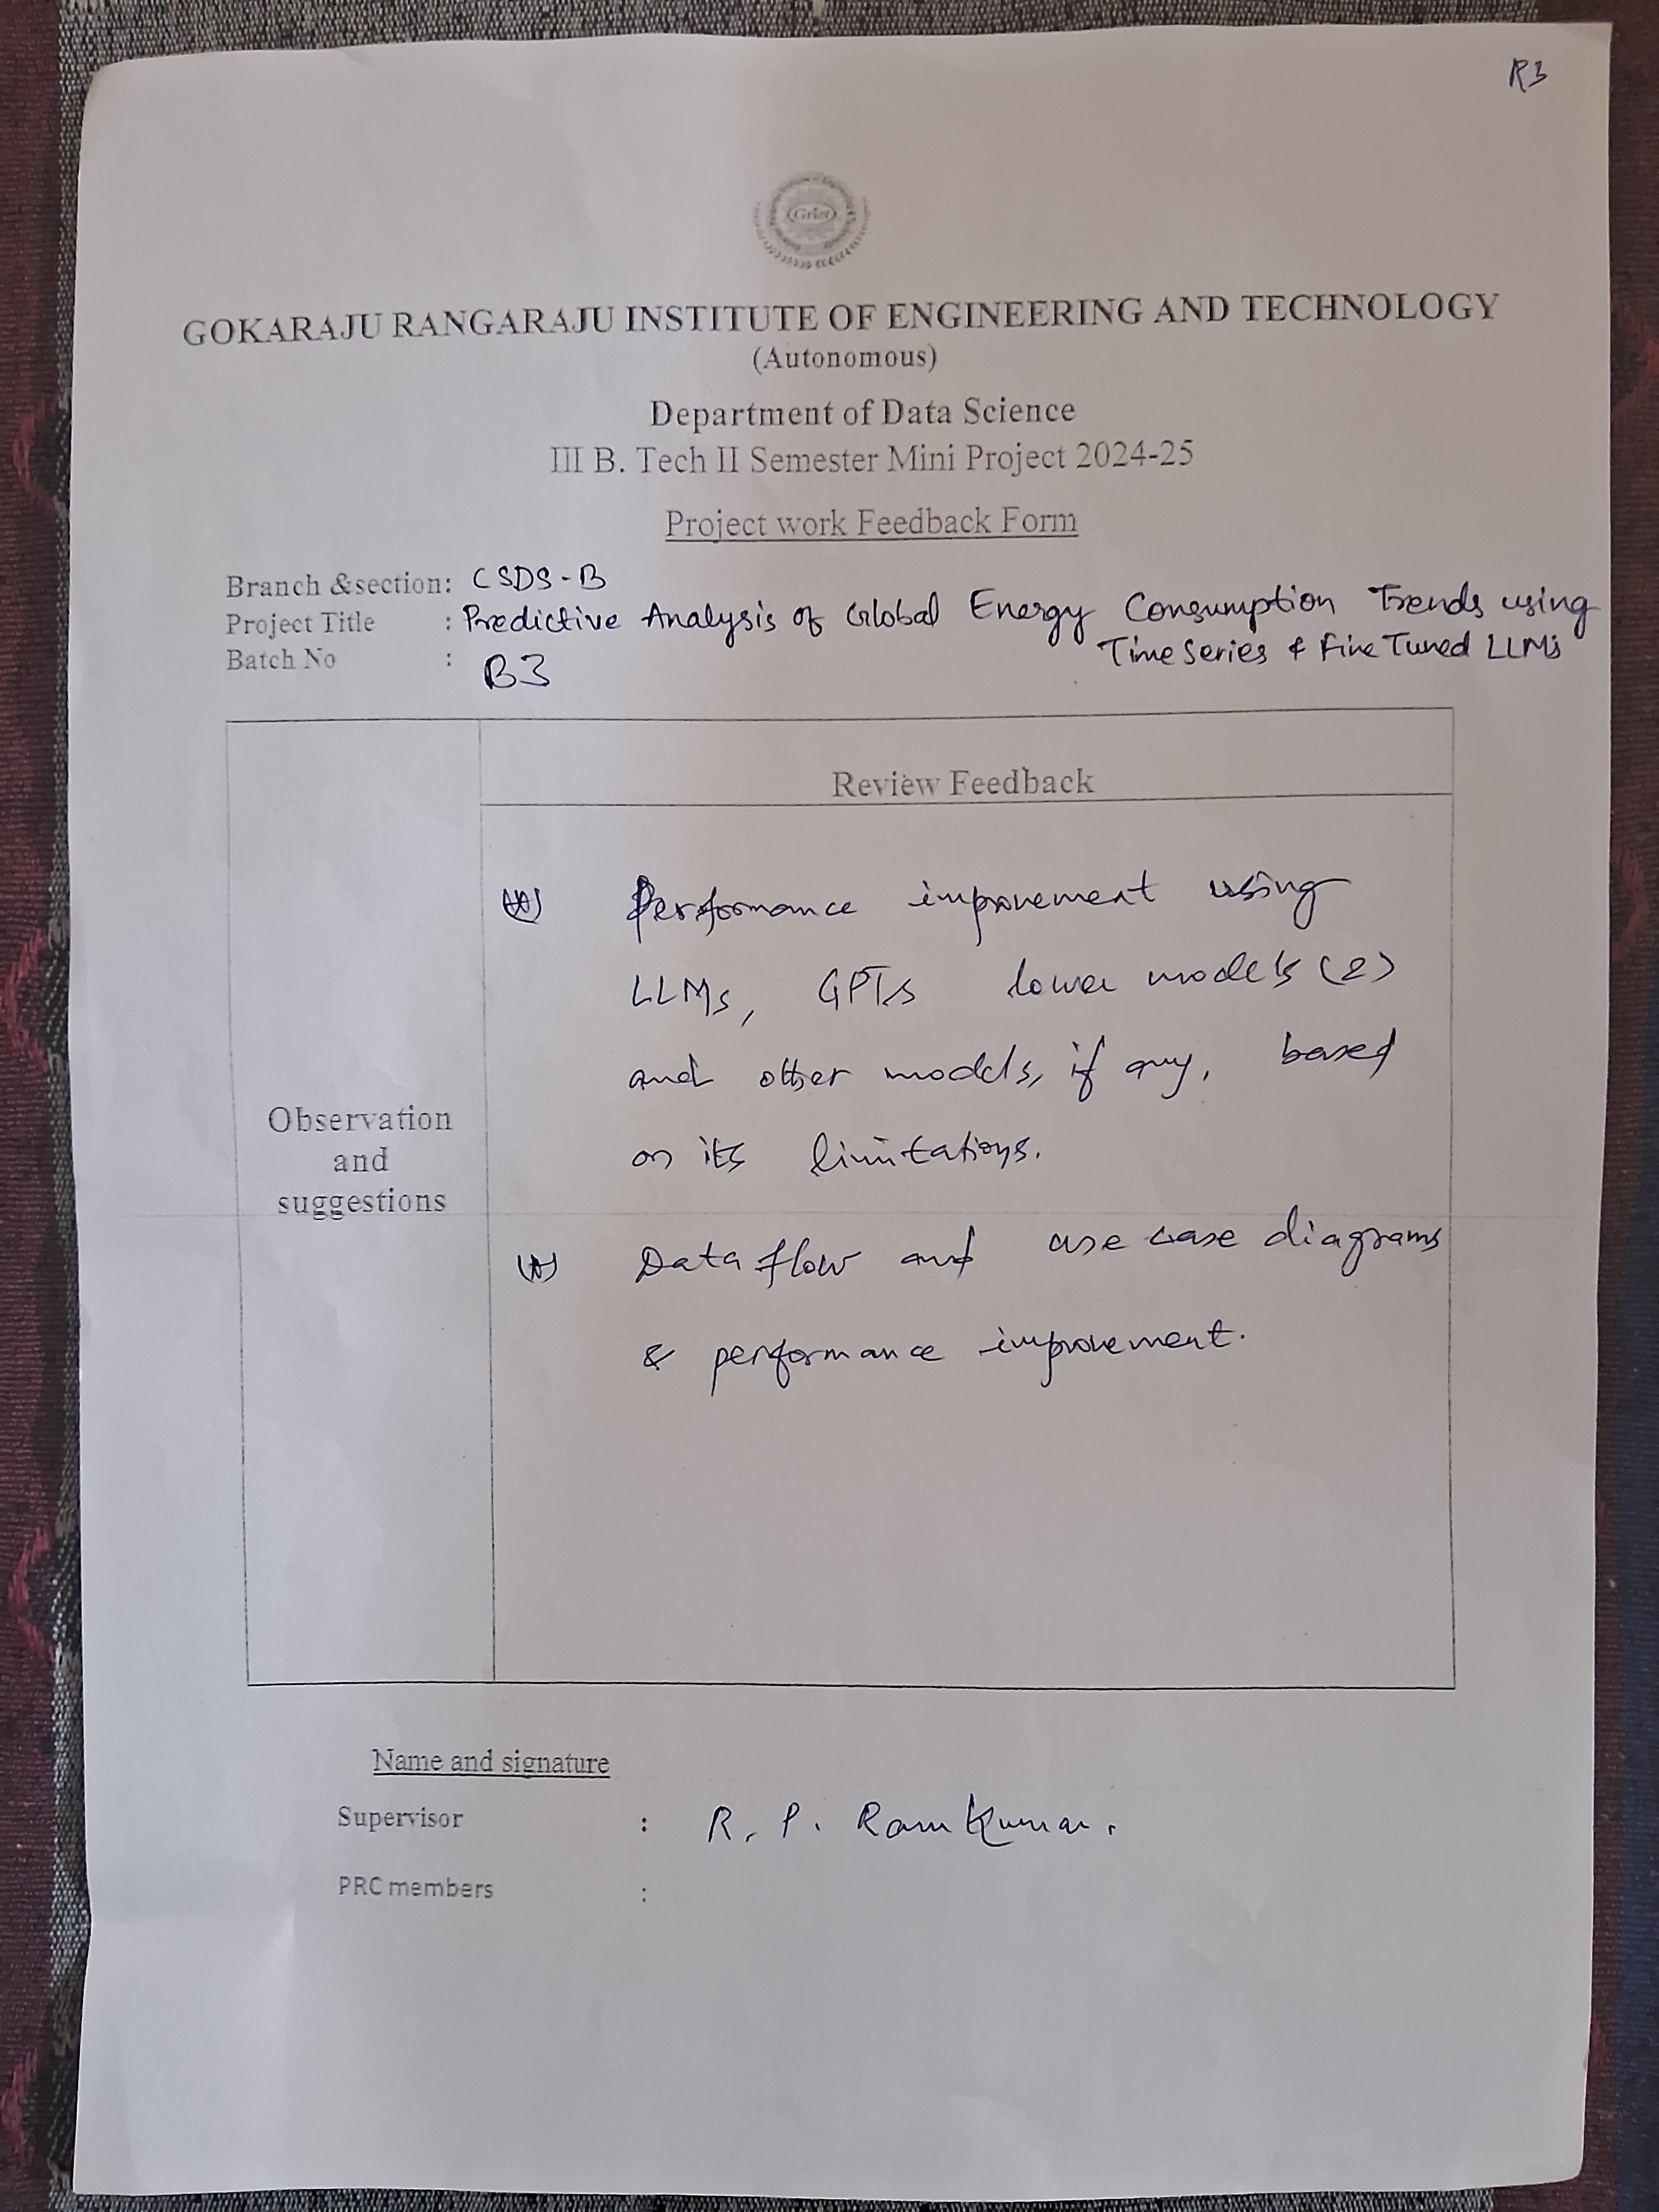 R3
Griet
GOKARAJU RANGARAJU INSTITUTE OF ENGINEERING AND TECHNOLOGY
(Autonomous)
Department of Data Science
III B. Tech II Semester Mini Project 2024-25
Project work Feedback Form
Branch &section: CSDS-B
Project Title : Predictive Analysis of Global Energy Consumption Trends using
Time Series & Fine Tuned LLMs
Batch No : B3
Review Feedback
Observation
and
suggestions
Performance improvement using
LLMs, GPTs lower models (2)
and other models, if any, based
on its limitations.
Data flow and use case diagrams
& performance improvement.
Name and signature
Supervisor : R. P. Ram Kumar.
PRC members :